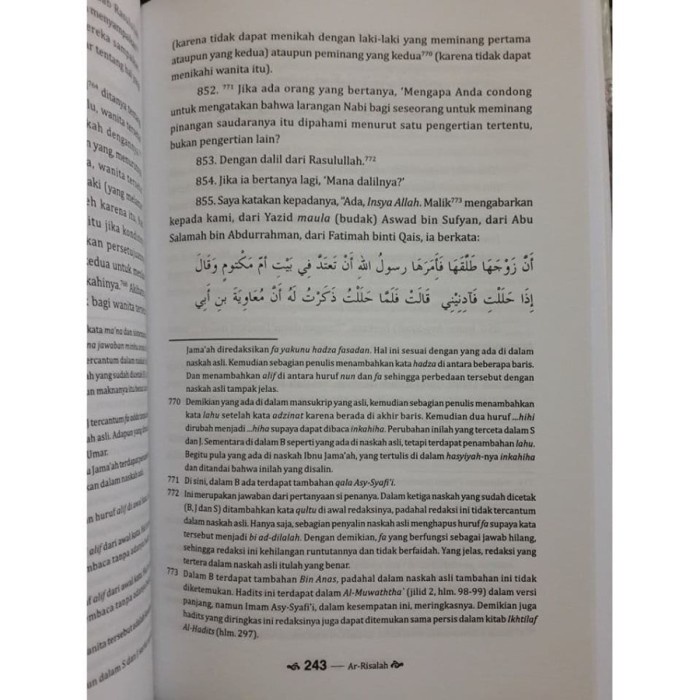 (karena tidak dapat menikah dengan laki-laki yang meminang pertama
ataupun yang kedua) ataupun peminang yang kedua⁷⁷⁰ (karena tidak dapat
menikahi wanita itu).
852. ⁷⁷¹ Jika ada orang yang bertanya, 'Mengapa Anda condong
untuk mengatakan bahwa larangan Nabi bagi seseorang untuk meminang
pinangan saudaranya itu dipahami menurut satu pengertian tertentu,
bukan pengertian lain?
853. Dengan dalil dari Rasulullah.⁷⁷²
854. Jika ia bertanya lagi, 'Mana dalilnya?'
855. Saya katakan kepadanya, "Ada, Insya Allah. Malik⁷⁷³ mengabarkan
kepada kami, dari Yazid maula (budak) Aswad bin Sufyan, dari Abu
Salamah bin Abdurrahman, dari Fatimah binti Qais, ia berkata:
أَنَّ زَوْجَهَا طَلَّقَهَا فَأَمَرَهَا رسولُ اللهِ أَنْ تَعْتَدَّ فِي بَيْتِ أمِّ مَكْتُومٍ وَقَالَ
إِذَا حَلَلْتِ فَآذِنِيْنِي قَالَتْ فَلَمَّا حَلَلْتُ ذَكَرْتُ لَهُ أَنَّ مُعَاوِيَةَ بن أَبِي
Jama'ah diredaksikan fa yakunu hadza fasadan. Hal ini sesuai dengan yang ada di dalam
naskah asli. Kemudian sebagian penulis menambahkan kata hadza di antara beberapa baris.
Dan menambahkan alif di antara huruf nun dan fa sehingga perbedaan tersebut dengan
naskah asli tampak jelas.
770 Demikian yang ada di dalam mansukrip yang asli, kemudian sebagian penulis menambahkan
kata lahu setelah kata adzinat karena berada di akhir baris. Kemudian dua huruf ...hihi
dirubah menjadi ...hiha supaya dapat dibaca inkahiha. Perubahan inilah yang tercetak dalam S
dan J. Sementara di dalam B seperti yang ada di naskah asli, tetapi terdapat penambahan lahu.
Begitu pula yang ada di naskah Ibnu Jama'ah, yang tertulis di dalam hasyiyah-nya inkahiha
dan ditandai bahwa inilah yang disalin.
771 Di sini, dalam B ada terdapat tambahan qala Asy-Syafi'i.
772 Ini merupakan jawaban dari pertanyaan si penanya. Dalam ketiga naskah yang sudah dicetak
(B, J dan S) ditambahkan kata qultu di awal redaksinya, padahal redaksi ini tidak tercantum
dalam naskah asli. Hanya saja, sebagian penyalin naskah asli menghapus huruf fa supaya kata
tersebut menjadi bi ad-dilalah. Dengan demikian, fa yang berfungsi sebagai jawab hilang,
sehingga redaksi ini kehilangan runtutannya dan tidak berfaidah. Yang jelas, redaksi yang
tertera dalam naskah asli itulah yang benar.
773 Dalam B terdapat tambahan Bin Anas, padahal dalam naskah asli tambahan ini tidak
diketemukan. Hadits ini terdapat dalam Al-Muwaththa' (jilid 2, hlm. 98-99) dalam versi
panjang, namun Imam Asy-Syafi'i, dalam kesempatan ini, meringkasnya. Demikian juga
hadits yang diringkas ini redaksinya juga dapat ditemukan sama persis dalam kitab Ikhtilaf
Al-Hadits (hlm. 297).
243 — Ar-Risalah